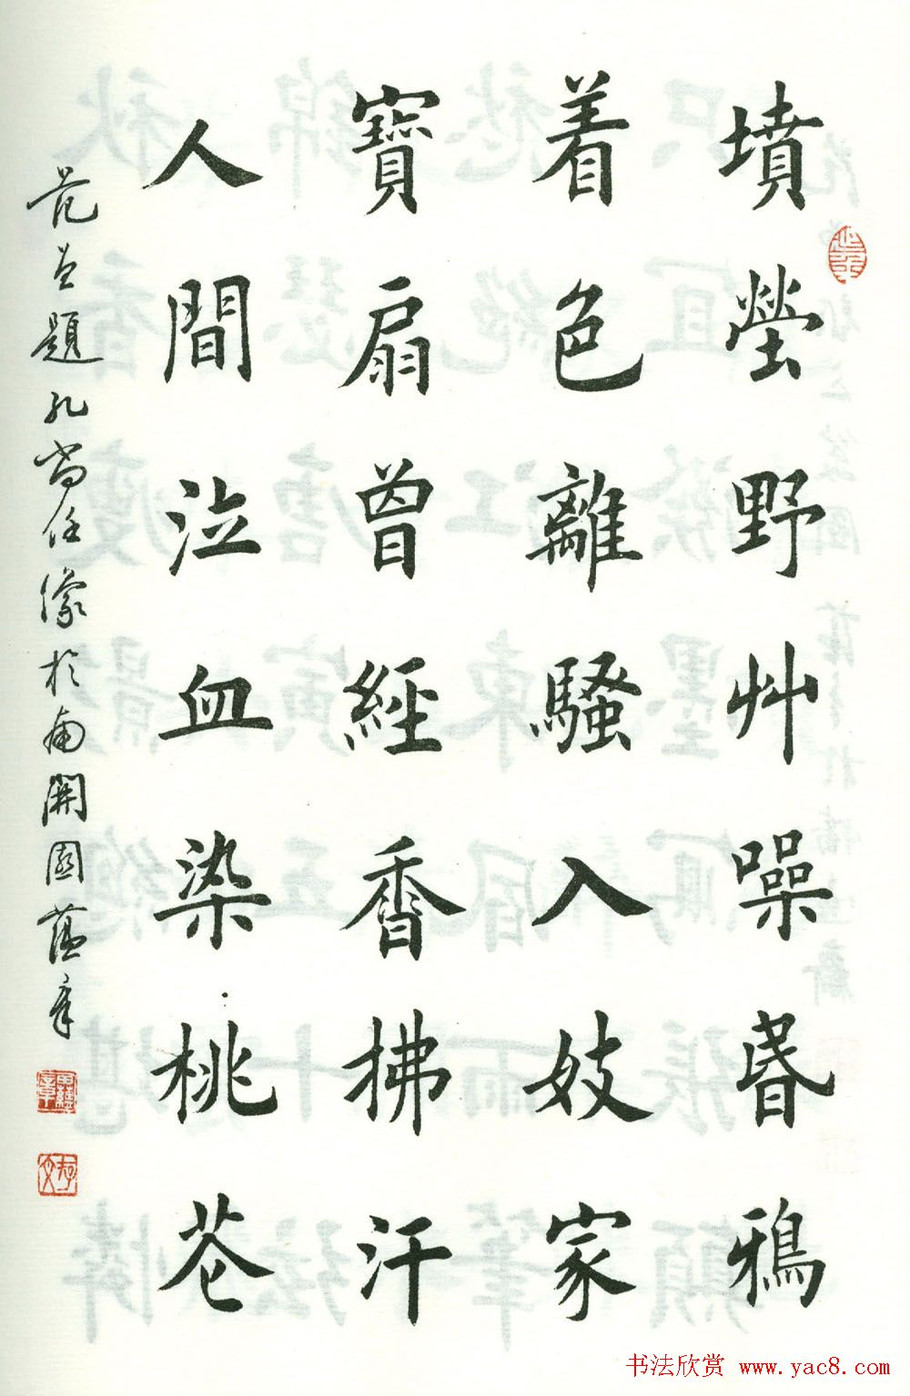 墳塋野艸噪昏鴉
着色離騷入妓家
寶扇曾經香拂汗
人間泣血染桃花
范曾題孔尚任像於南開園蘊章
书法欣赏 www.yac8.com